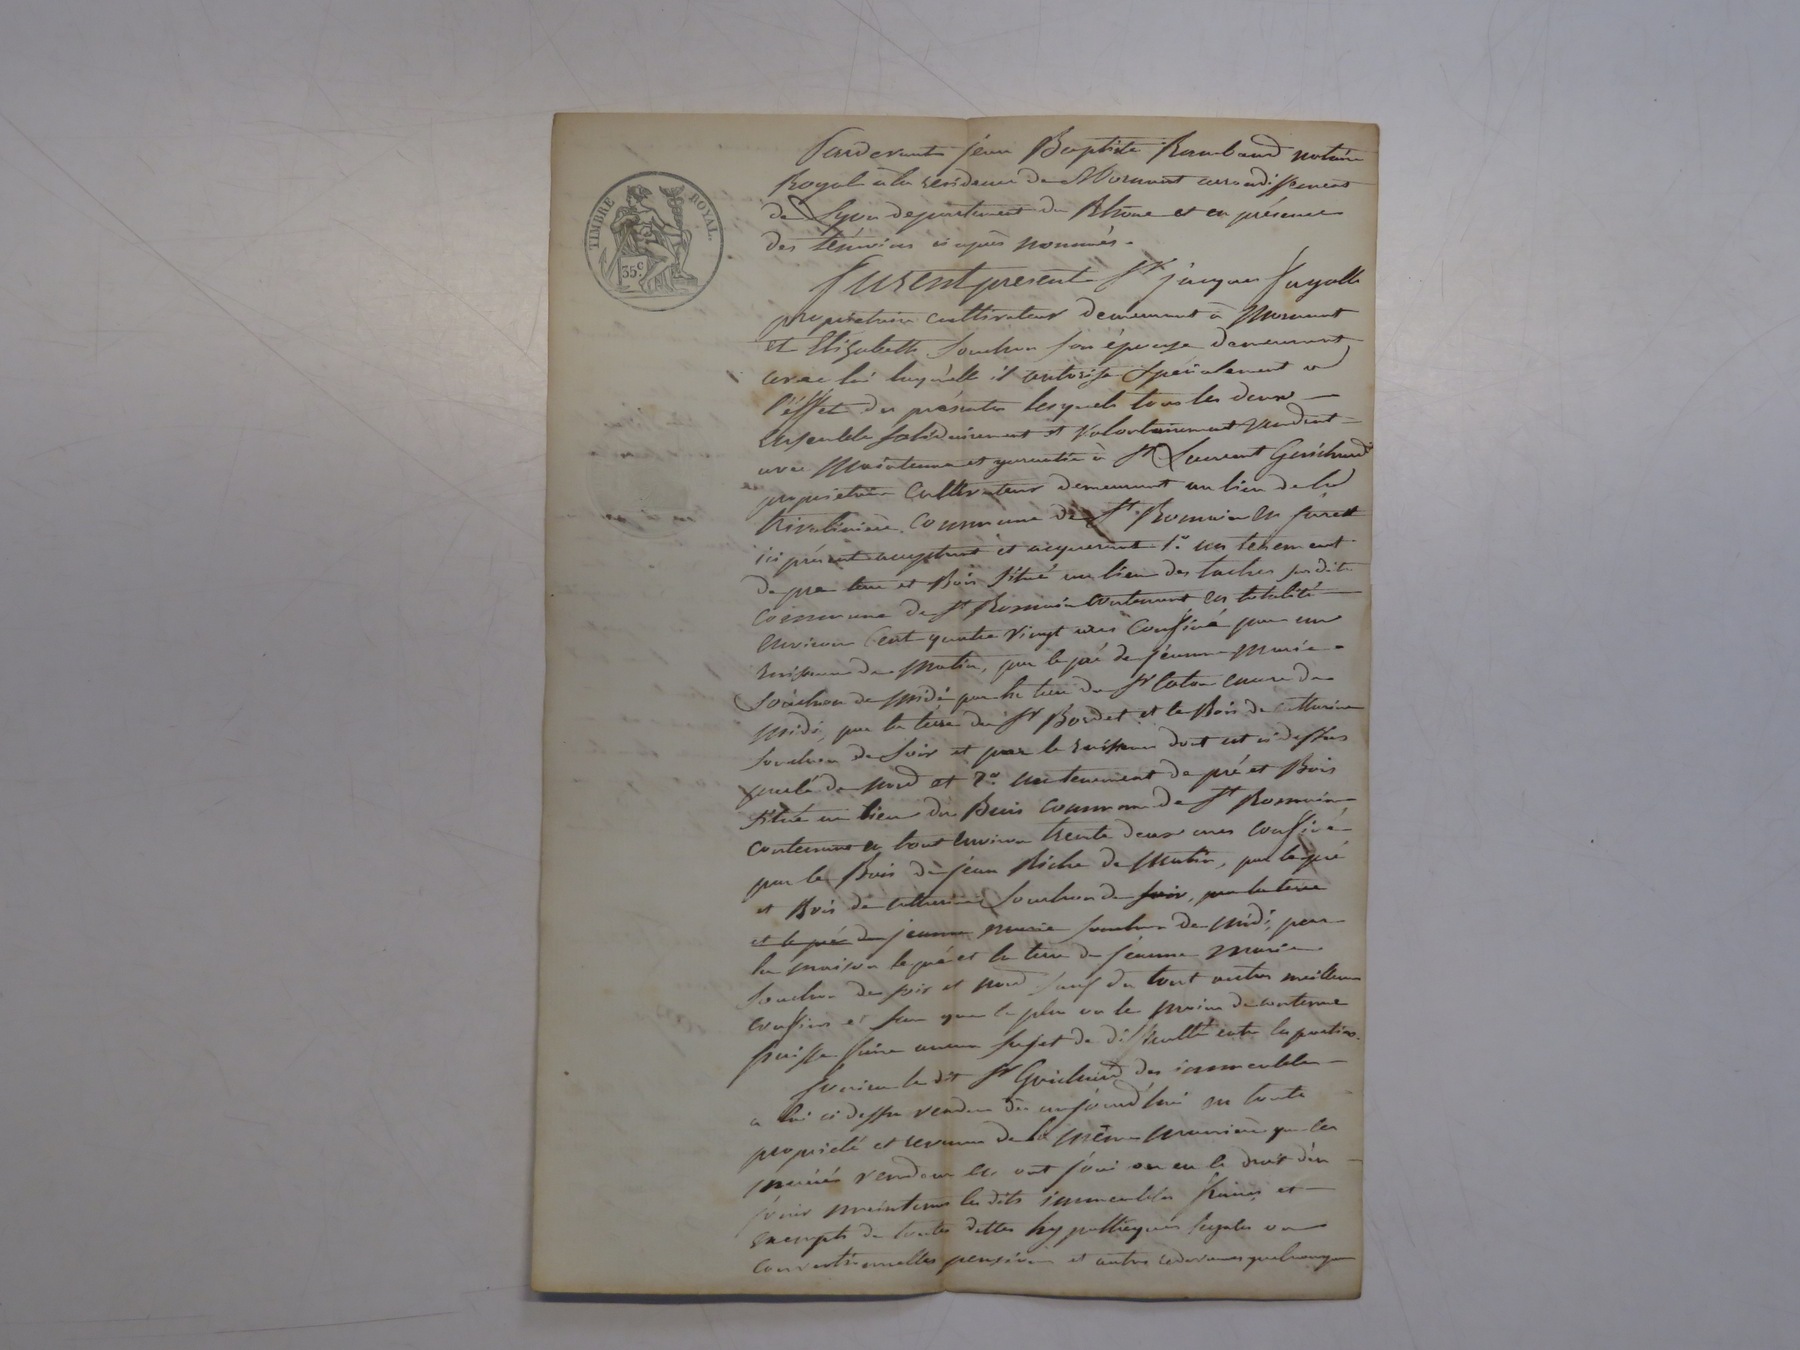 TIMBRE ROYAL.
35 c
Pardevant jean Baptiste Rambaud notaire
Royal à la residence de Mornant arrondissement
de Lyon departement du Rhône et en présence
des témoins ci après nommés.
Furent present Sr jacques Fayolle
propriétaire cultivateur demeurant à Mornant
et Elizabeth Souchon son épouse demeurant
avec lui laquelle il autorise spécialement a
l'éffet des présentes lesquels tous les deux
ensemble solidairement et volontairement vendent
avec maintenue et garantie à Sr Laurent Guichard
propriétaire cultivateur demeurant au lieu de la
commune de St Romain en jarest
ici présent acceptant et acquereur 1o un tenement
de pré terre et Bois situé au lieu des susdite
commune de St Romain contenant en totalité
environ cent quatre vingt ares confiné par un
ruisseau de matin, par le pré de jeanne marie
Souchon de midi par la terre de Sr encore de
midi, par la terre du Sr Bordet et le Bois de catherine
Souchon de soir et par le ruisseau dont est ci dessus
parlé de nord et 2o un tenement de pré et Bois
situé au lieu du Buis commune de St Romain
contenant en tout environ trente deux ares confiné
par le Bois de jean Riche de matin, par le pré
et Bois de catherine Souchon de soir, par la terre
et le pré de jeanne marie Souchon de midi, par
la maison le pré et la terre de jeanne marie
Souchon de soir et nord sauf du tout autres meilleurs
confins et sans que le plus ou le moins de contenue
puisse faire aucun sujet de difficulté entre les parties.
le dit Sr Guichard des immeubles
a lui ci dessus vendus dès aujourd'hui en toute
propriété et revenu de la même manière que les
mariés vendeurs en ont joui ou eu le droit d'en
jouir maintenus les dits immeubles francs et
exempts de toutes dettes hypothèques légales ou
conventionnelles pensions et autres redevances quelconques